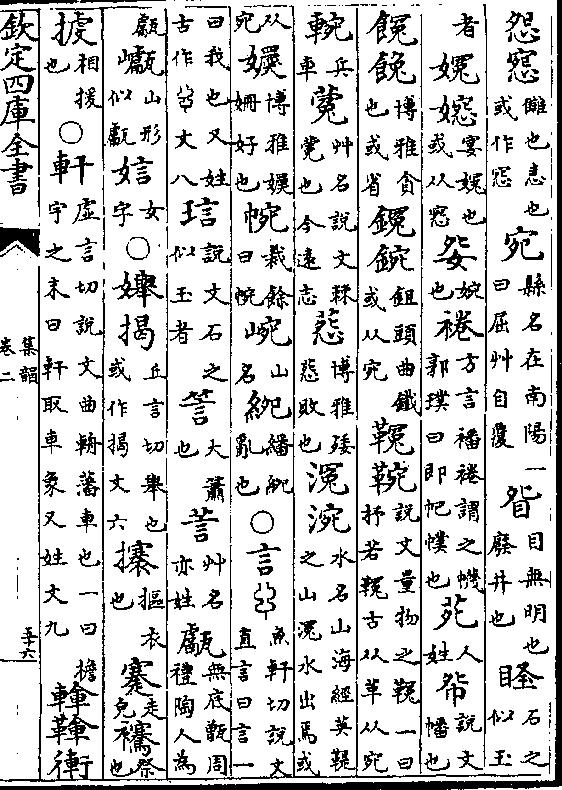 怨窓讎也恚也或作窓宛縣名在南陽一曰屈艸自覆眢目無明也廢井也䀲石之似玉
者㛟㜶宴㛟也或从窓妴婉也裷方言襎裷謂之幭郭璞曰即帊幞也苑人姓帤說文幡也
䬧䬇博雅貪也或省鋺鉏頭曲鐵或从宛鞔䩩說文量物之鞔一曰抒井鞔古从革从宛
䡝兵車薧艸名說文棘薧也今遠志葾博雅矮葾敗也涴水名山海經英鞮之山涴水出焉或
从宛㜶博雅嫫㜶姍好也㡾裁餘曰㡾㟶山名䋣繙䋣亂也○言魚軒切說文直言曰言一
曰我也又姓古作文八琂說文石之似玉者䇾大簫也䓂艸名亦姓甗無底甑周禮陶人為
甗巘山形似甗䛳女字○攑揭丘言切舉也或作揭文六攐摳衣也蹇走皃襱祭也
㩜相援也○軒虛言切說文曲輈藩車也一曰檐宇之末曰軒取車象又姓文九
欽定四庫全書
集韻
卷二
五十六